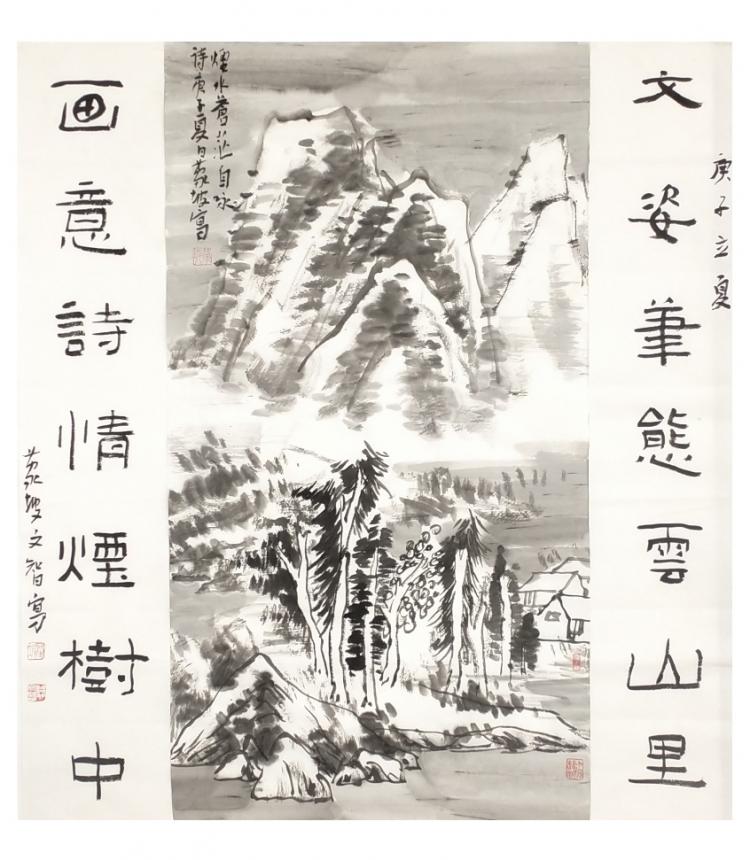 庚子立夏
文姿筆態雲山里
煙水蒼茫自詠
詩庚子夏日蒙坡寫
画意詩情煙樹中
蒙坡文智寫